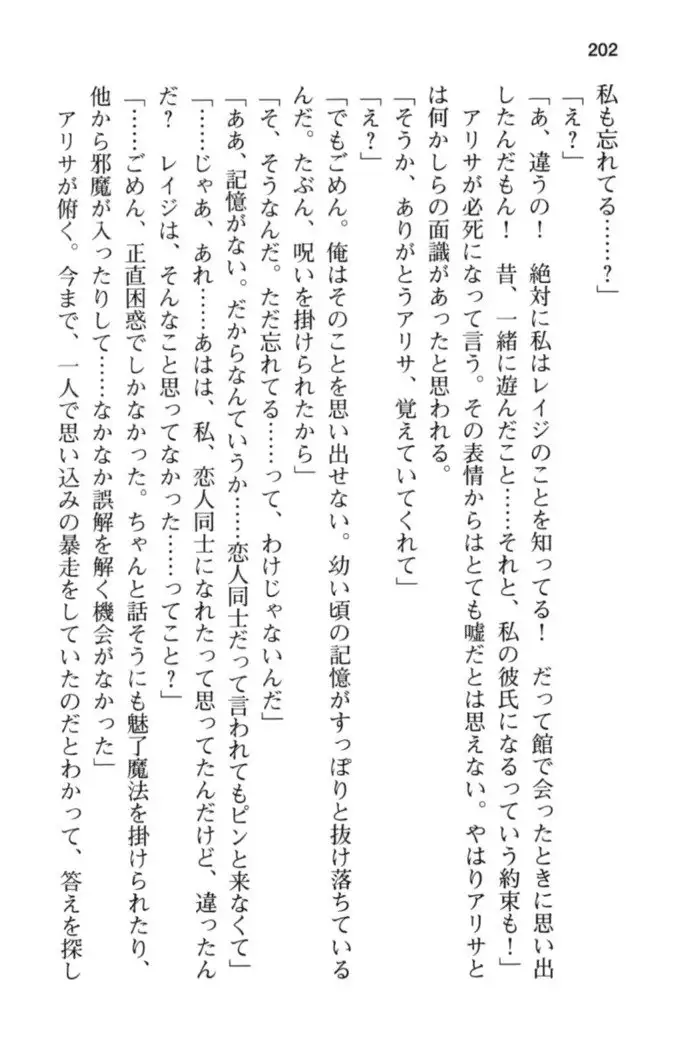 202
私も忘れてる……？」
「え？」
「あ、違うの！　絶対に私はレイジのことを知ってる！　だって館で会ったときに思い出
したんだもん！　昔、一緒に遊んだこと……それと、私の彼氏になるっていう約束も！」
　アリサが必死になって言う。その表情からはとても嘘だとは思えない。やはりアリサと
は何かしらの面識があったと思われる。
「そうか、ありがとうアリサ、覚えていてくれて」
「え？」
「でもごめん。俺はそのことを思い出せない。幼い頃の記憶がすっぽりと抜け落ちている
んだ。たぶん、呪いを掛けられたから」
「そ、そうなんだ。ただ忘れてる……って、わけじゃないんだ」
「ああ、記憶がない。だからなんていうか……恋人同士だって言われてもピンと来なくて」
「……じゃあ、あれ……あはは、私、恋人同士になれたって思ってたんだけど、違ったん
だ？　レイジは、そんなこと思ってなかった……ってこと？」
「……ごめん、正直困惑でしかなかった。ちゃんと話そうにも魅了魔法を掛けられたり、
他から邪魔が入ったりして……なかなか誤解を解く機会がなかった」
　アリサが俯く。今まで、一人で思い込みの暴走をしていたのだとわかって、答えを探し